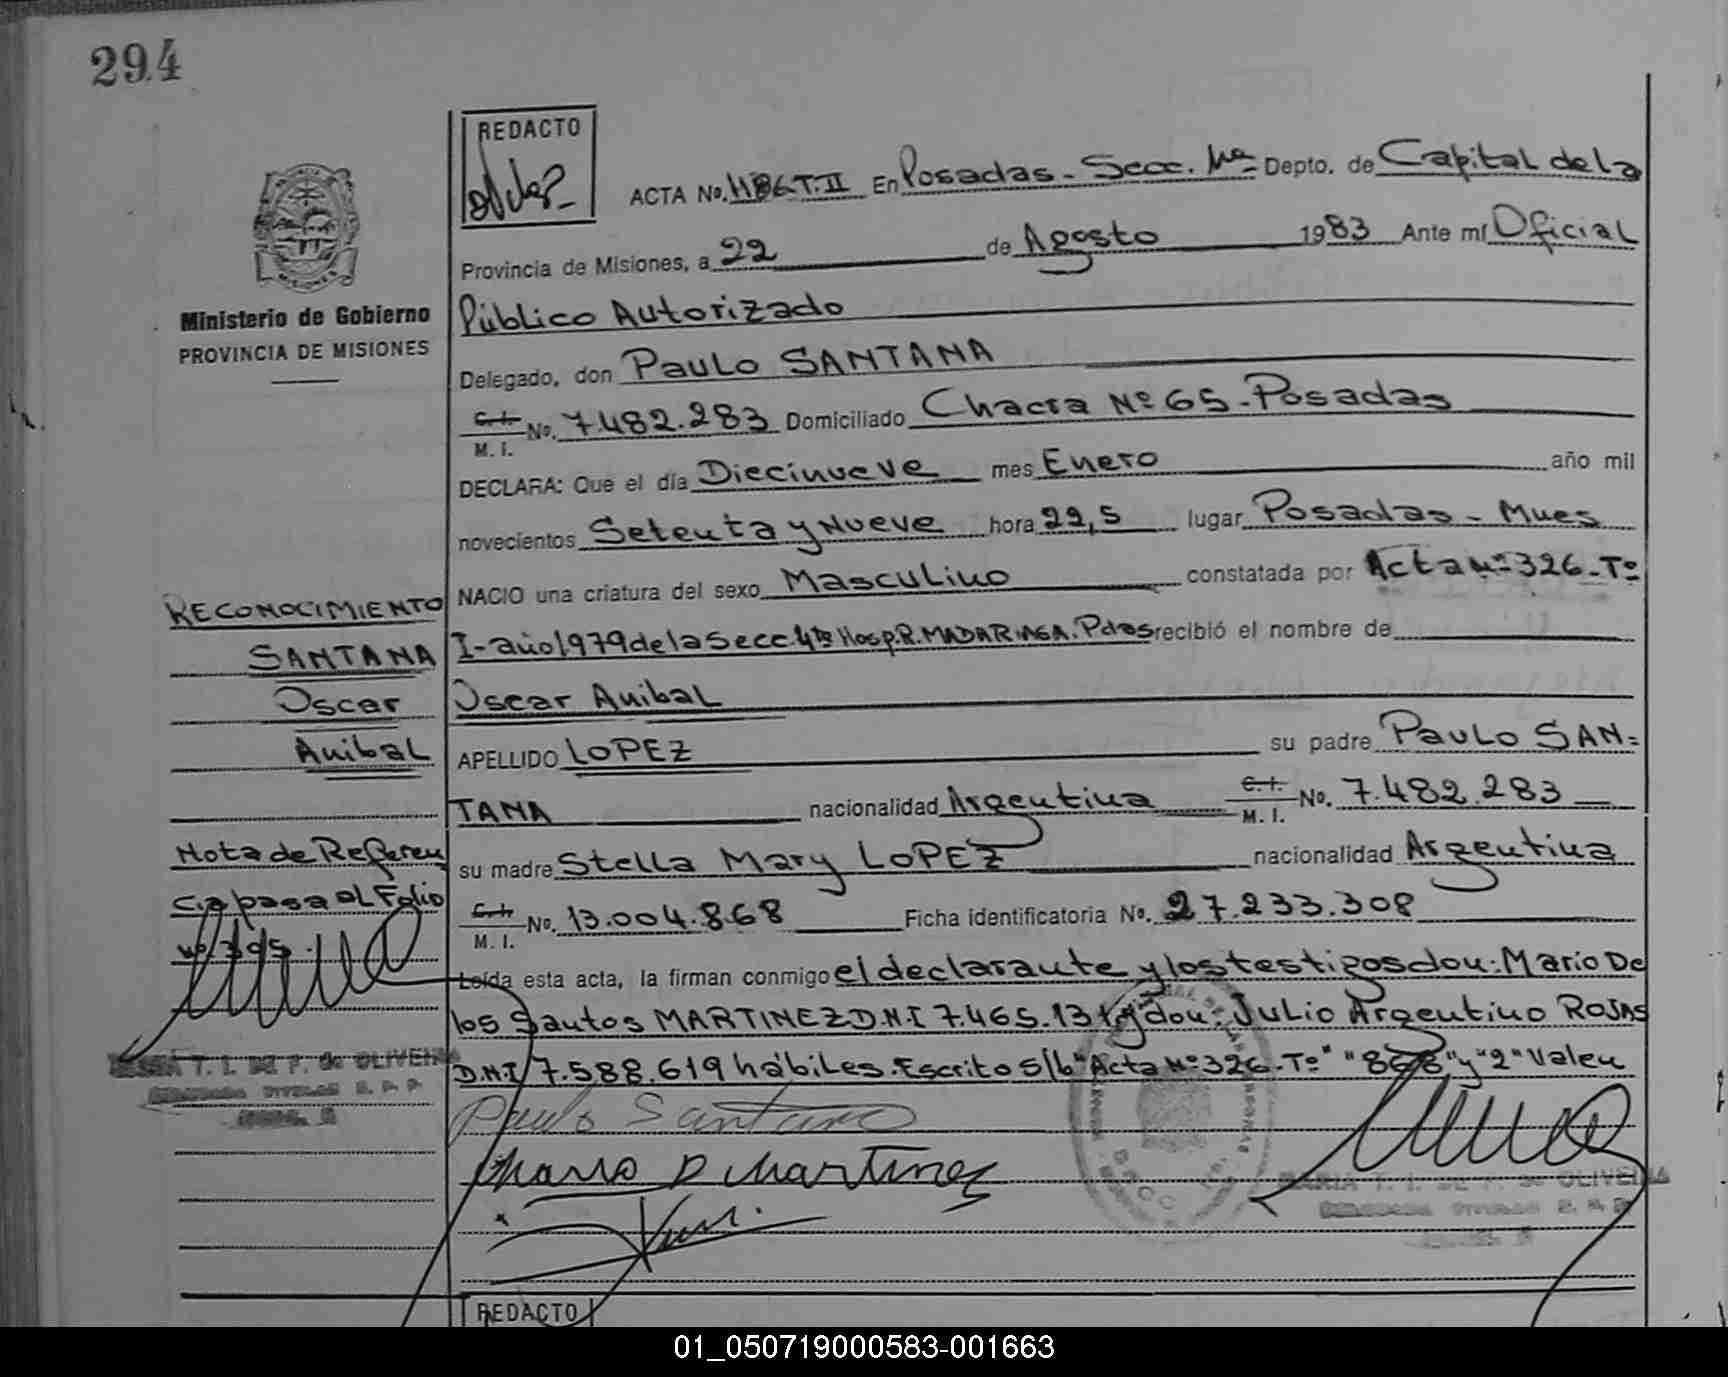 294
REDACTO
ACTA No. 1186-T.II En Posadas - Secc. 1ra Depto. de Capital de la
Provincia de Misiones, a 22 de Agosto 1983 Ante mí Oficial
Público Autorizado
Ministerio de Gobierno
PROVINCIA DE MISIONES
Delegado, don Paulo SANTANA
C.I. M.I. No. 7.482.283 Domiciliado Chacra Nº 65 - Posadas
DECLARA: Que el día Diecinueve mes Enero año mil
novecientos Setenta y Nueve hora 22,5 lugar Posadas - Mnes
NACIO una criatura del sexo Masculino constatada por Acta Nº 326 - Tº
I - año 1979 de la Secc. 4ta Hosp. R. MADARIAGA. Pdas recibió el nombre de
Oscar Anibal
APELLIDO LOPEZ su padre Paulo SAN=
TANA nacionalidad Argentina C.I. M.I. No. 7.482.283
su madre Stella Mary LOPEZ nacionalidad Argentina
C.I. M.I. No. 13.004.868 Ficha identificatoria No. 27.233.308
Leída esta acta, la firman conmigo el declarante y los testigos don: Mario De
los Santos MARTINEZ D.N.I 7.465.131 y don: Julio Argentino ROJAS
D.N.I 7.588.619 hábiles. Escrito s/b "Acta Nº 326 - Tº" "868" y "2" Valen
Paulo Santana
Mario D Martinez
RECONOCIMIENTO
SANTANA
Oscar
Anibal
Nota de Referen
cia pasa al Folio
nº 395.
MARIA T. I. DE P. de OLIVEIRA
MARIA T. I. DE P. de OLIVEIRA
REDACTO
01_050719000583-001663